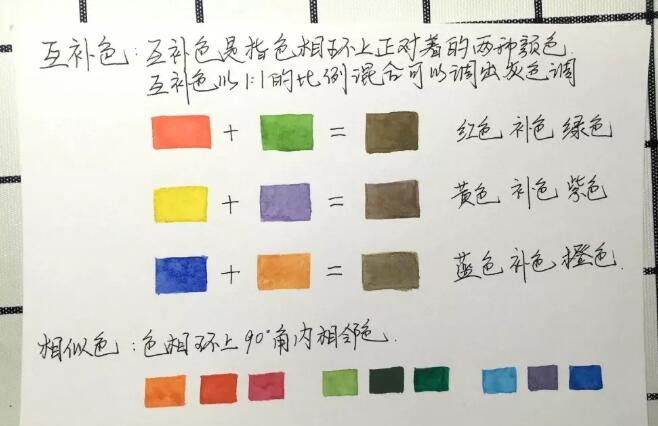 互补色：互补色是指色相环上正对着的两种颜色.
互补色以1:1的比例混合可以调出灰色调
+ = 红色 补色 绿色
+ = 黄色 补色 紫色
+ = 蓝色 补色 橙色.
相似色：色相环上90°角内相邻色.